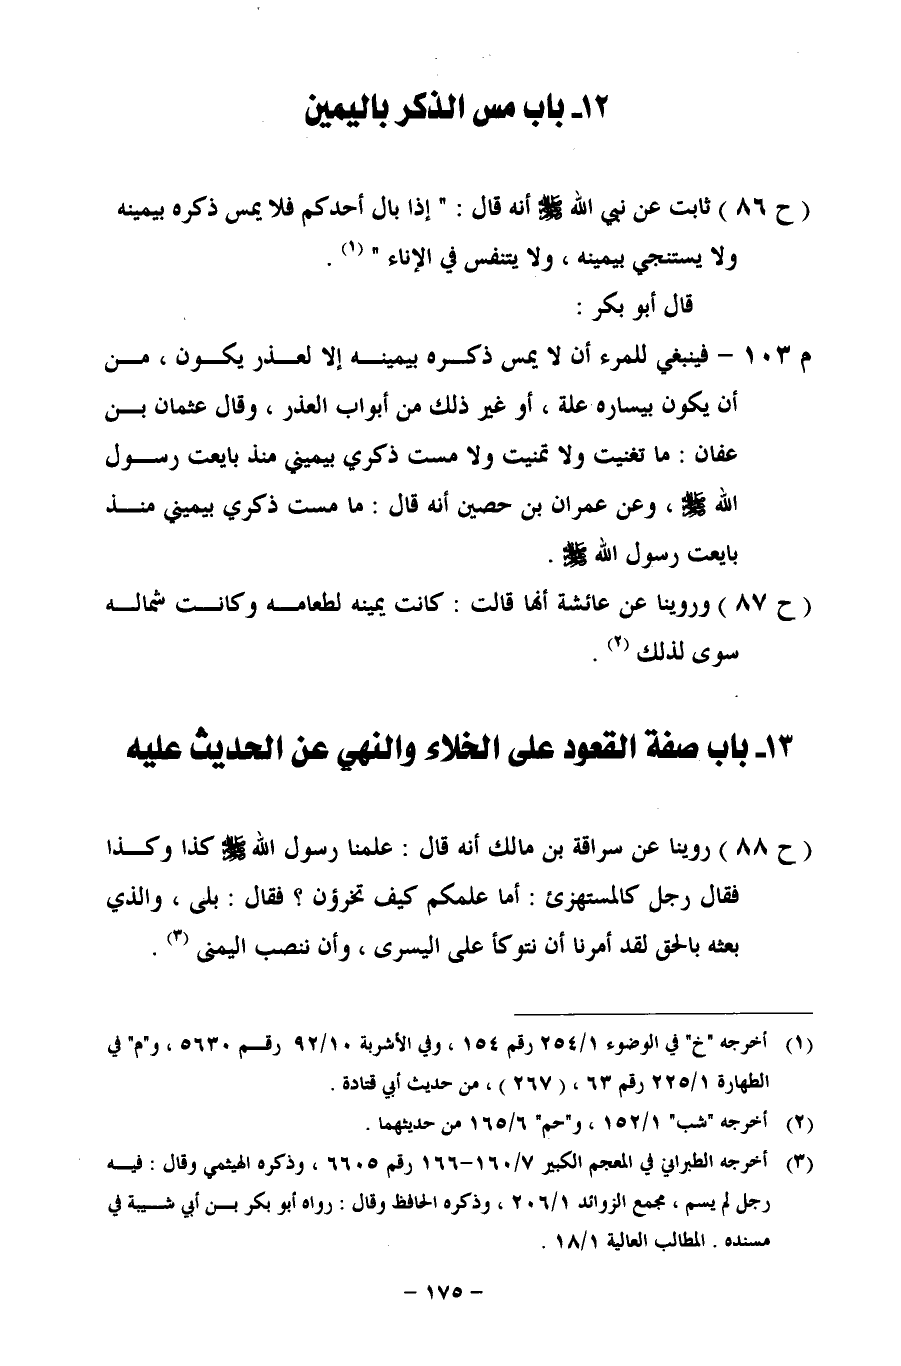 ١٢ـ باب مس الذكر باليمين
( ح ٨٦ ) ثابت عن نبي الله ﷺ أنه قال : " إذا بال أحدكم فلا يمس ذكره بيمينه
ولا يستنجي بيمينه ، ولا يتنفس في الإناء " (١) .
قال أبو بكر :
م ١٠٣ – فينبغي للمرء أن لا يمس ذكـــره بيمينـــه إلا لعـــذر يكـــون ، مـــن
أن يكون بيساره علة ، أو غير ذلك من أبواب العذر ، وقال عثمان بـــن
عفان : ما تغنيت ولا تمنيت ولا مست ذكري بيميني منذ بايعت رســـول
الله ﷺ ، وعن عمران بن حصين أنه قال : ما مست ذكري بيميني منـــذ
بايعت رسول الله ﷺ .
( ح ٨٧ ) وروينا عن عائشة أنها قالت : كانت يمينه لطعامـــه وكانـــت شمالـــه
سوى لذلك (٢) .
١٣ـ باب صفة القعود على الخلاء والنهي عن الحديث عليه
( ح ٨٨ ) روينا عن سراقة بن مالك أنه قال : علمنا رسول الله ﷺ كذا وكـــذا
فقال رجل كالمستهزئ : أما علمكم كيف تخرؤن ؟ فقال : بلى ، والذي
بعثه بالحق لقد أمرنا أن نتوكأ على اليسرى ، وأن ننصب اليمنى (٣) .
(١) أخرجه "خ" في الوضوء ٢٥٤/١ رقم ١٥٤ ، وفي الأشربة ٩٢/١٠ رقـــم ٥٦٣٠ ، و"م" في
الطهارة ٢٢٥/١ رقم ٦٣ ، ( ٢٦٧ ) ، من حديث أبي قتادة .
(٢) أخرجه "شب" ١٥٢/١ ، و"حم" ١٦٥/٦ من حديثهما .
(٣) أخرجه الطبراني في المعجم الكبير ١٦٠/٧–١٦٦ رقم ٦٦٠٥ ، وذكره الهيثمي وقال : فيـــه
رجل لم يسم ، مجمع الزوائد ٢٠٦/١ ، وذكره الحافظ وقال : رواه أبو بكر بـــن أبي شـــيبة في
مسنده . المطالب العالية ١٨/١ .
– ١٧٥ –